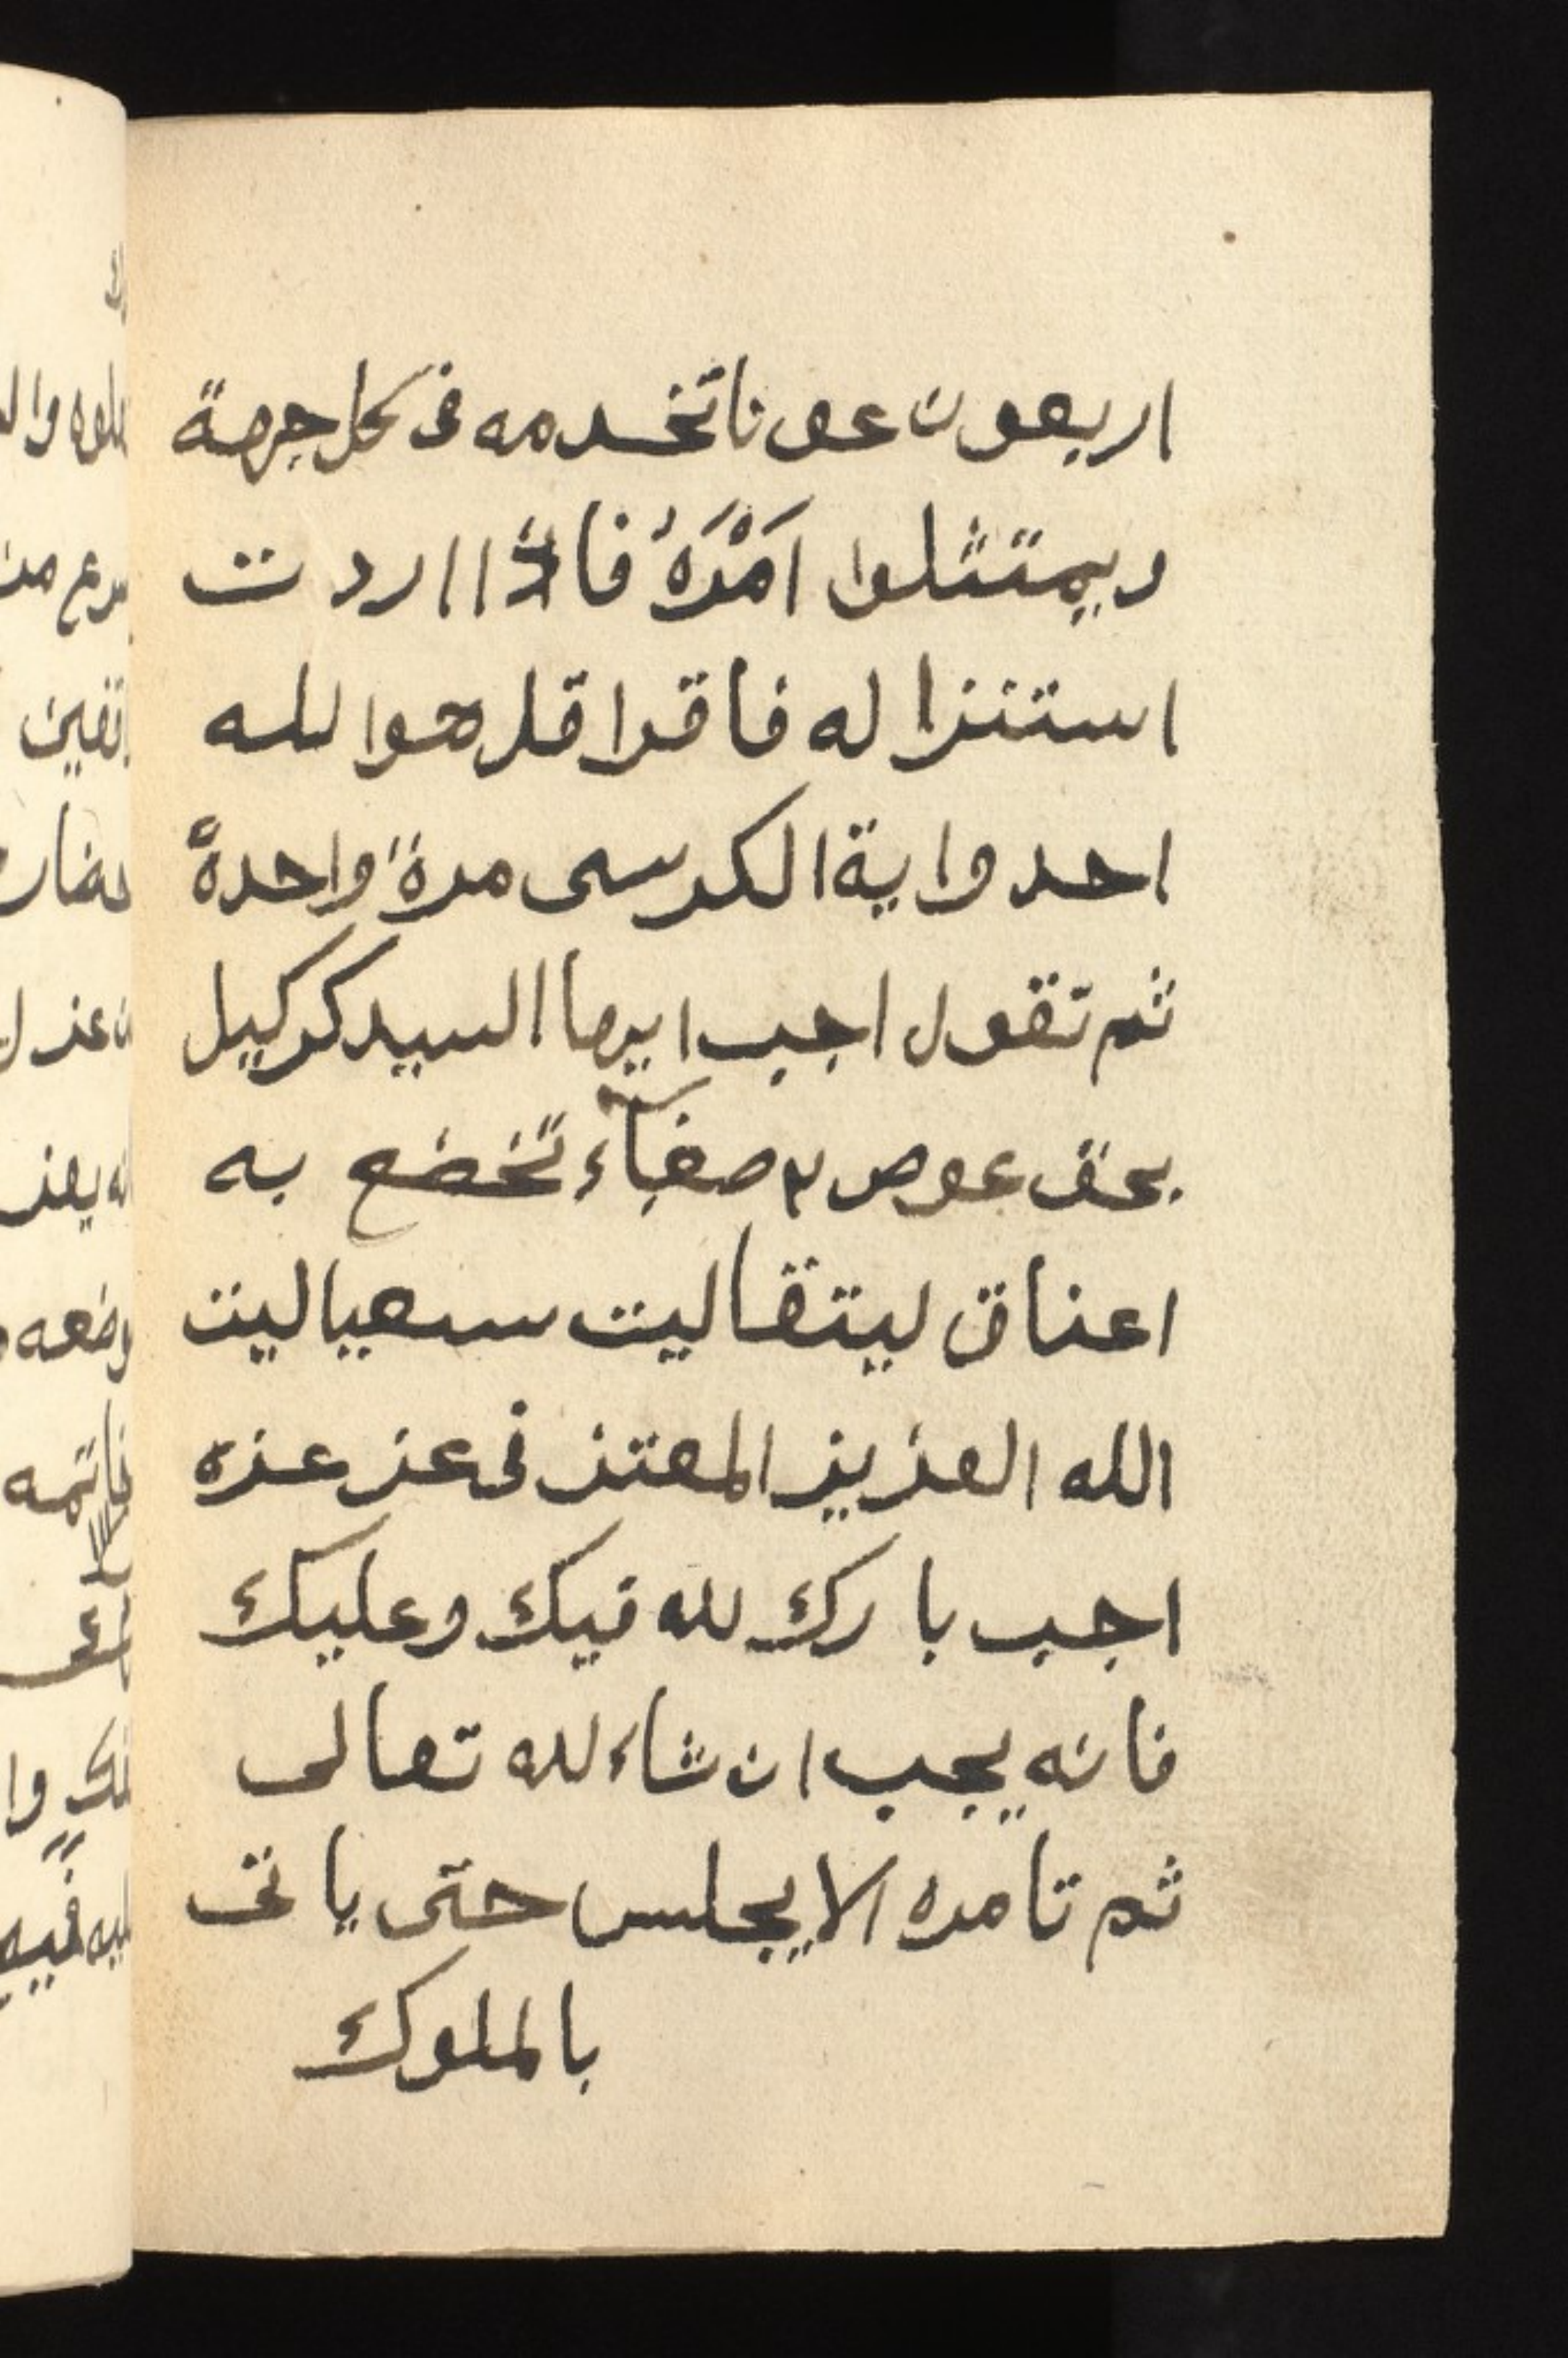 اربعون عونا تخدمه فى كل جهة
ويمتثلوا اَمْرَهُ فاذا اردت
استنزاله فاقرا قل هو الله
احد واية الكرسى مرةً واحدةً
ثم تقول اجب ايها السيد كركيل
بحق عوص م صغبآء تخضع به
اعناق ليتقاليت سعياليت
الله العزيز المعتز فى عز عزه
اجب بارك لله فيك وعليك
فانه يجب ان شاء لله تعالى
ثم تامره الا يجلس حتى ياتى
بالملوك